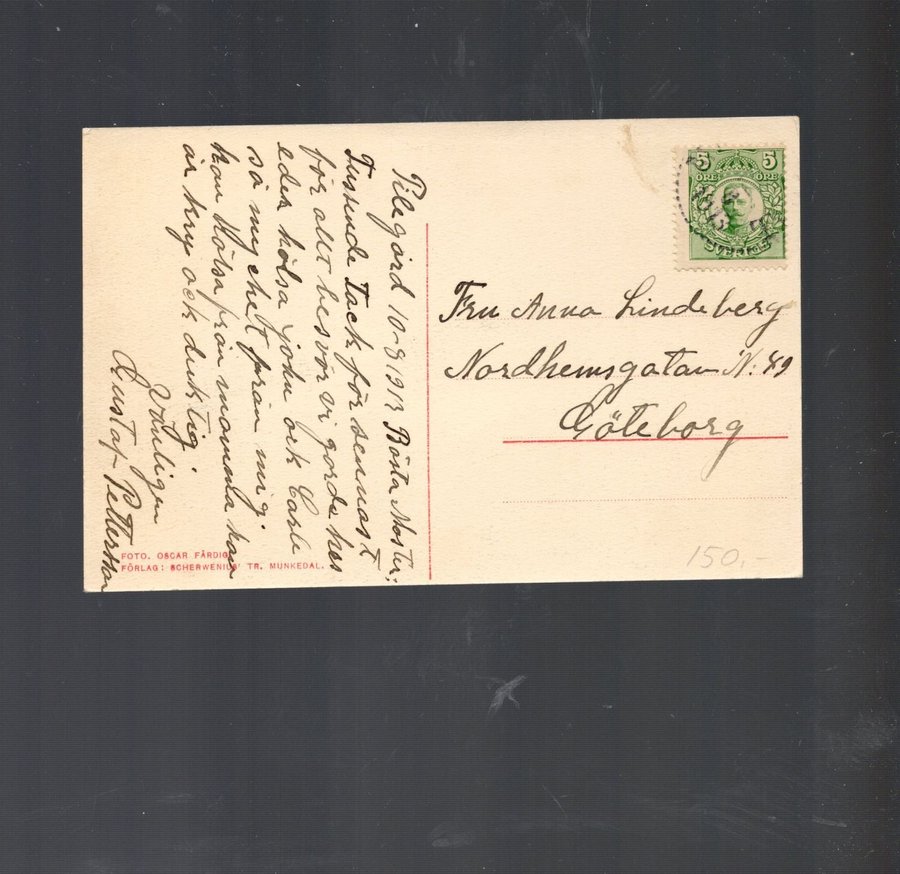 Pilegård 10-8 1913 Bästa Moster;
Tussende Tack för sennast
för allt besvör vi gorde hos
eder hälsa john ock Carle
så mychet från mig.
kan hälsa från mamma han
är kry ock duktig.
Vänligen
Gustaf Petterson
FOTO. OSCAR FÄRDIG
FÖRLAG: SCHERWENIUS' TR. MUNKEDAL.
5 5
ÖRE ÖRE
SVERIGE
Fru Anna Lindeberg
Nordhemsgatan N: 49
Göteborg
150.-